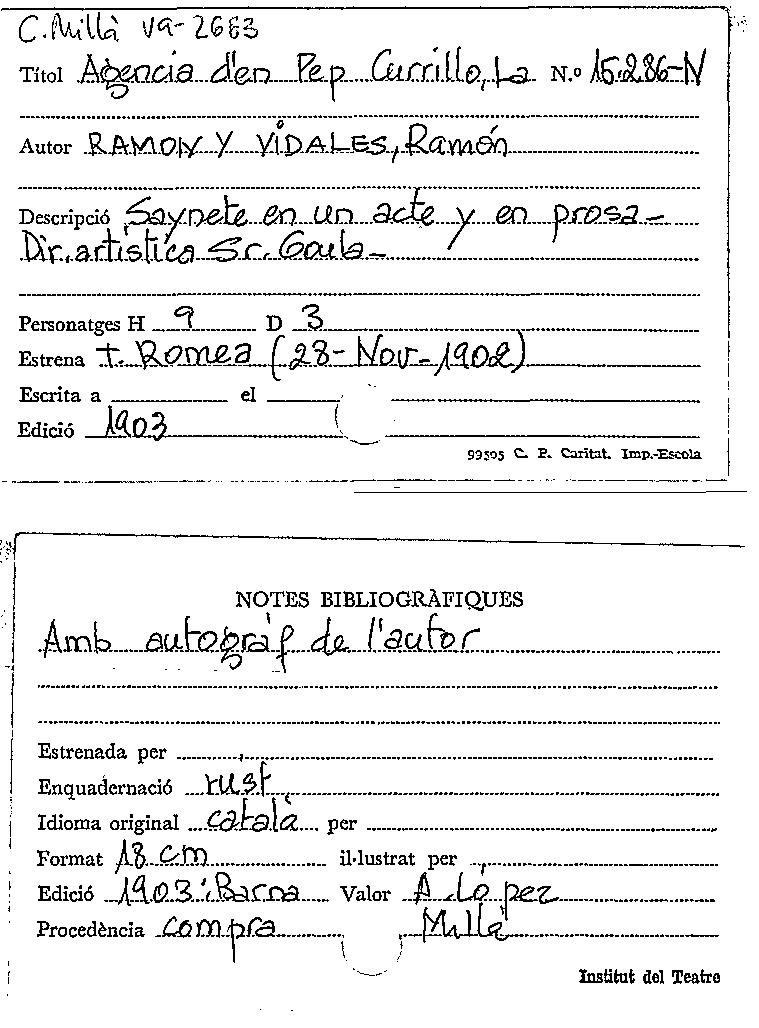 C. Millà va-2683
Títol Agencia d'en Pep Currillo, La N.º 15.286-N
Autor RAMON Y VIDALES, Ramón
Descripció Saynete en un acte y en prosa-
Dir. artística Sr. Goula-
Personatges H 9 D 3
Estrena T. Romea (28-Nov-1902)
Escrita a el
Edició 1903
99505 C. P. Caritat. Imp.-Escola
NOTES BIBLIOGRÀFIQUES
Amb autògraf de l'autor
Estrenada per
Enquadernació rust.
Idioma original català per
Format 18 cm il·lustrat per
Edició 1903: Barna Valor A. López
Procedència compra Millà
Institut del Teatre